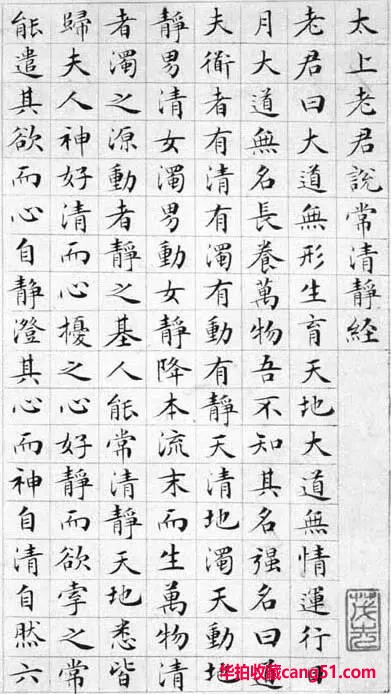 太上老君說常清靜經
老君曰大道無形生育天地大道無情運行日
月大道無名長養萬物吾不知其名强名曰道
夫衜者有清有濁有動有靜天清地濁天動地
靜男清女濁男動女靜降本流末而生萬物清
者濁之源動者靜之基人能常清靜天地悉皆
歸夫人神好清而心擾之心好靜而欲牽之常
能遣其欲而心自静澄其心而神自清自然六
华拍收藏cang51.com